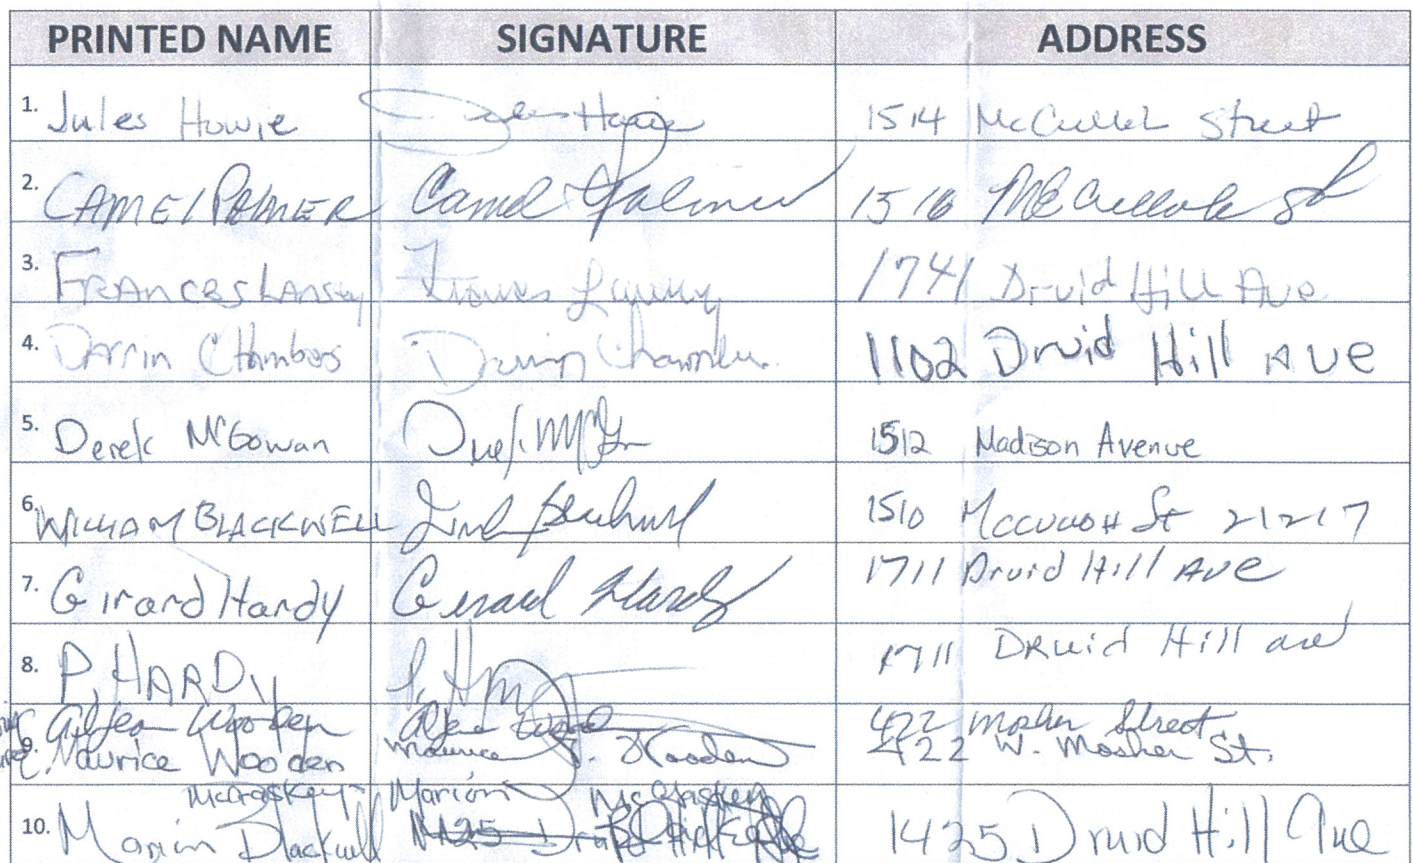 PRINTED NAME SIGNATURE ADDRESS
1. Jules Howie Jules Howie 1514 McCulloh Street
2. CAMEL PALMER Camel Palmer 1516 McCulloh St
3. FRANCES LANSEY Frances Lansey 1741 Druid Hill Ave
4. Darrin Chambers Darrin Chambers 1102 Druid Hill AVE
5. Derek McGowan Derek 1512 Madison Avenue
6. WILLIAM BLACKWELL 1510 McCulloH St 21217
7. Girard Hardy Gerard Hardy 1711 Druid Hill AVE
8. P. HARDY P. 1711 DRuid Hill ave
Wooden 422 Mosher Street
9. Maurice Wooden Maurice Wooden 422 W. Mosher St.
McCaskey Marion McCaskey
10. Marion Blackwell 1425 Druid Hill Ave